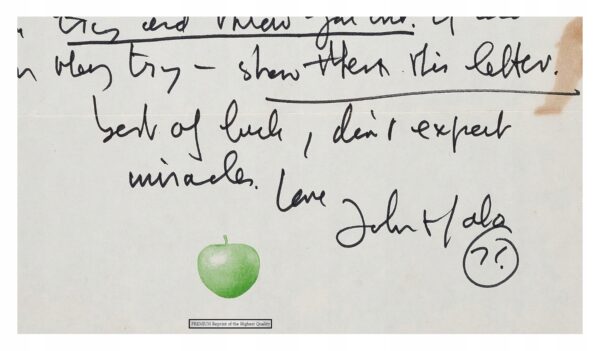 try and throw you out. if
they try – show them this letter.
best of luck, don't expect
miracles.
Love
John + Yoko
??
PREMIUM Reprint of the Highest Quality